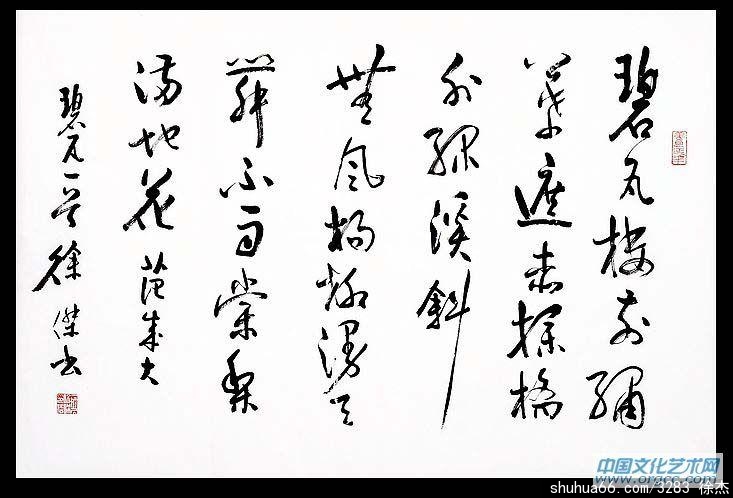 碧瓦樓前繡
幕遮赤欄橋
外綠溪斜
無風楊柳漫天
絮不雨棠梨
滿地花 范成大
碧瓦一首 徐傑书
中国文化艺术网
www.orgcc.com
shuhua66.com/3283 徐杰